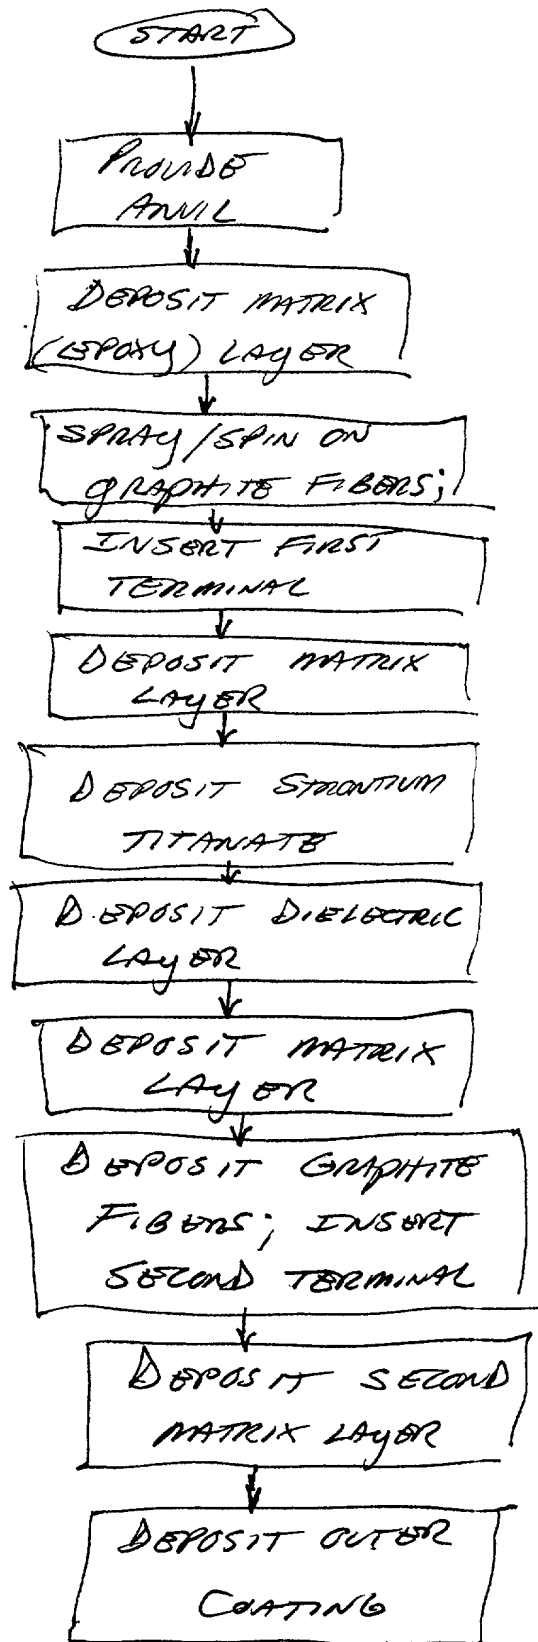 START
PROVIDE
ANVIL
DEPOSIT MATRIX
(EPOXY) LAYER
SPRAY/SPIN ON
GRAPHITE FIBERS;
INSERT FIRST
TERMINAL
DEPOSIT MATRIX
LAYER
DEPOSIT STRONTIUM
TITANATE
DEPOSIT DIELECTRIC
LAYER
DEPOSIT MATRIX
LAYER
DEPOSIT GRAPHITE
FIBERS; INSERT
SECOND TERMINAL
DEPOSIT SECOND
MATRIX LAYER
DEPOSIT OUTER
COATING